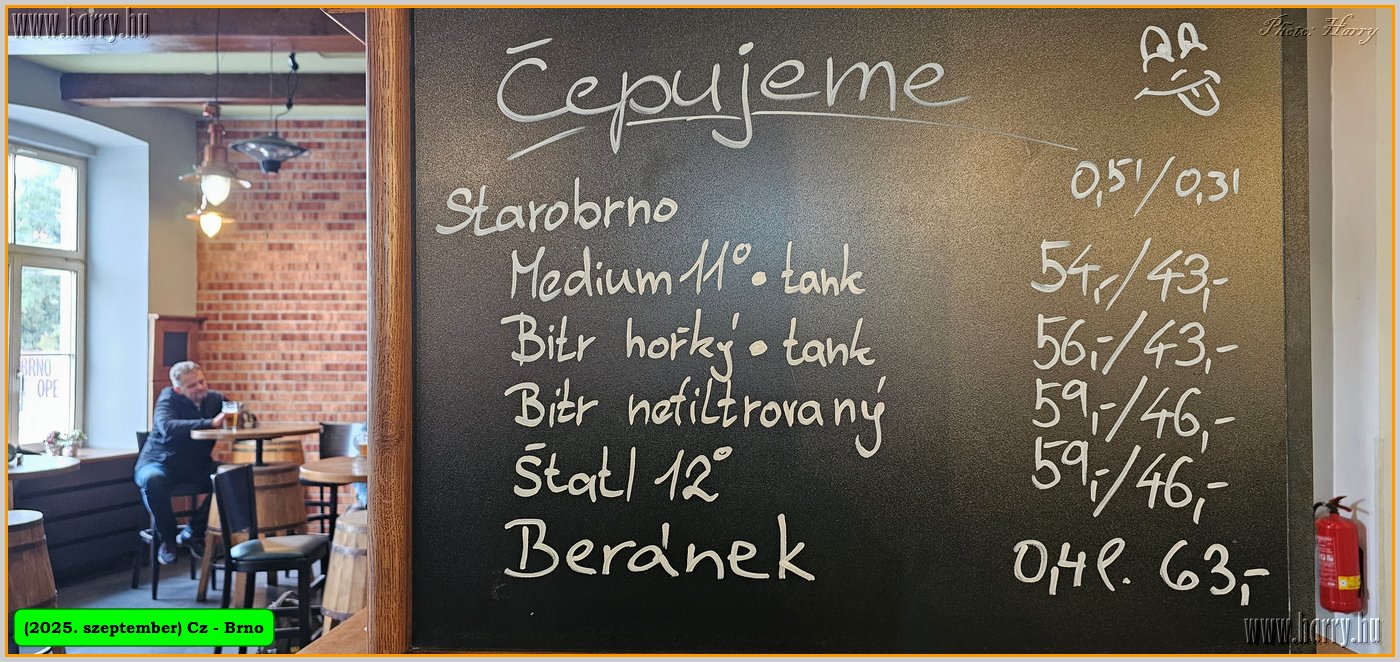 www.harry.hu
Photo: Harry
Čepujeme
0,5l/0,3l
Starobrno
Medium 11° • tank 54,-/43,-
Bitr hořký • tank 56,-/43,-
Bitr nefiltrovaný 59,-/46,-
Štatl 12° 59,-/46,-
Beránek 0,4l. 63,-
BRNO
OPE
(2025. szeptember) Cz - Brno
www.harry.hu